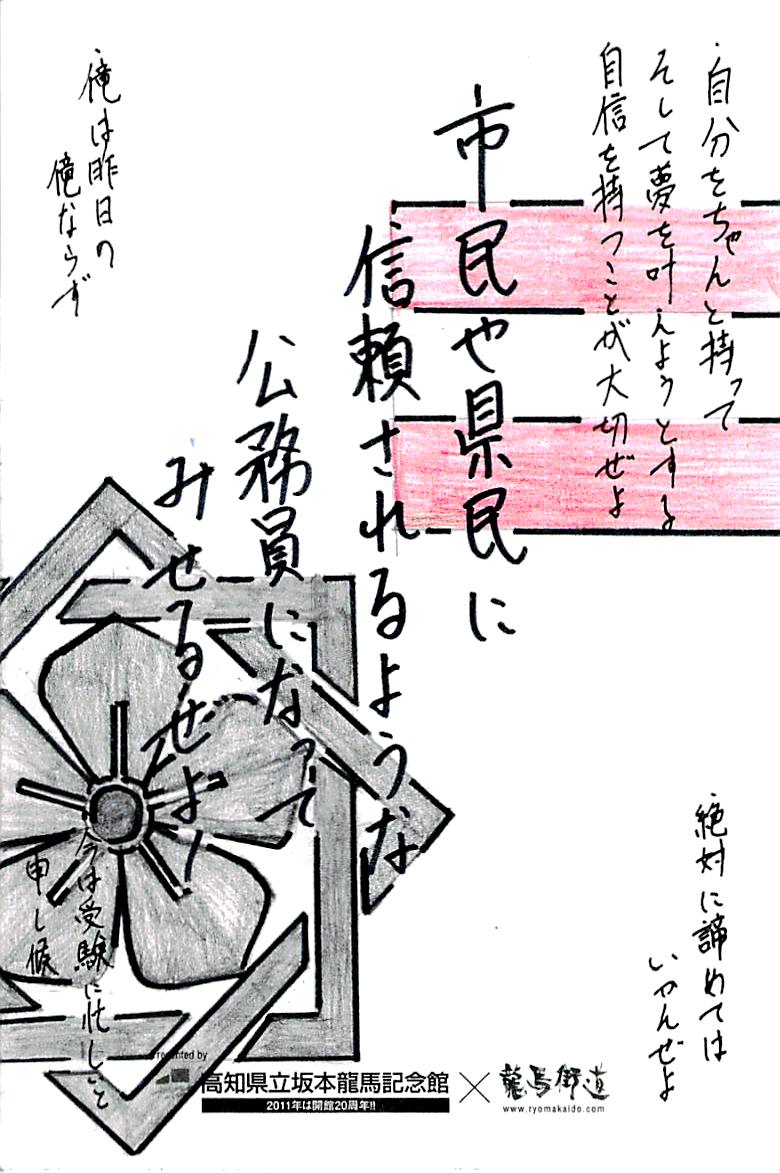 ・自分をちゃんと持って
そして夢を叶えようとする
自信を持つことが大切ぜよ
市民や県民に
信頼されるような
公務員になって
みせるぜよ!
・俺は昨日の
俺ならず
絶対に諦めては
いかんぜよ
今は受験に忙しこと
申し候
Presented by
高知県立坂本龍馬記念館
2011年は開館20周年!!
×
龍馬街道
www.ryomakaido.com